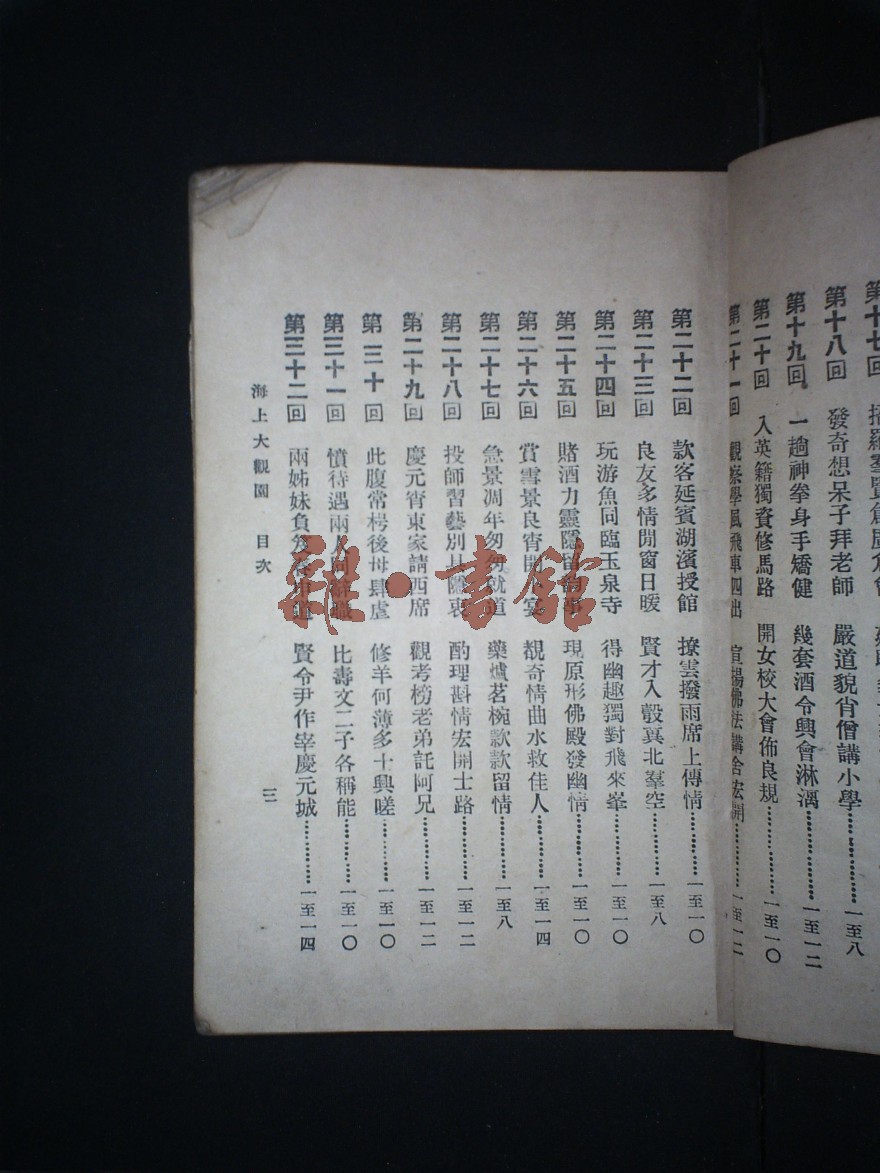 第十七回
第十八回 發奇想呆子拜老師 嚴道貌肖僧講小學 一至八
第十九回 一趟神拳身手矯健 幾套酒令興會淋漓 一至一二
第二十回 入英籍獨資修馬路 開女校大會佈良規 一至一〇
第二十一回 觀察學風飛車四出 宣揚佛法講舍宏開 一至一二
第二十二回 款客延賓湖濱授館 撩雲撥雨席上傳情 一至一〇
第二十三回 良友多情閒窗日暖 賢才入彀冀北羣空 一至八
第二十四回 玩游魚同臨玉泉寺 得幽趣獨對飛來峯 一至一〇
第二十五回 賭酒力靈隱留 現原形佛殿發幽情 一至一〇
第二十六回 賞雪景良宵開 宴 覩奇情曲水救佳人 一至一四
第二十七回 急景凋年匆匆就道 藥爐茗椀款款留情 一至八
第二十八回 投師習藝別具隱衷 酌理斟情宏開士路 一至一二
第二十九回 慶元宵東家請西席 觀考榜老弟託阿兄 一至一二
第三十回 此腹常枵後母肆虐 修羊何薄多士興嗟 一至一〇
第三十一回 憤待遇兩人同辭職 比壽文二子各稱能 一至一〇
第三十二回 兩姊妹負笈 道 賢令尹作宰慶元城 一至一四
海上大觀園 目次 三
雜·書館